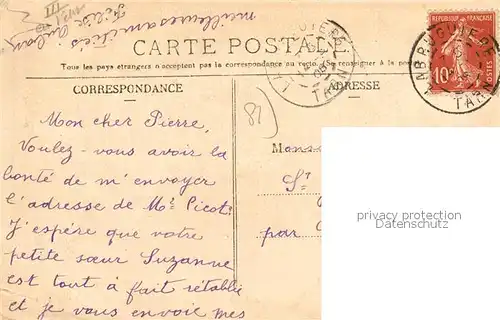 meilleures amitiés
CARTE POSTALE
Tous les pays étrangers n'acceptent pas la correspondance au recto. (Se renseigner à la poste
CORRESPONDANCE
ADRESSE
TARN
TARN
10
POSTES
Mon cher Pierre,
Voulez-vous avoir la
bonté de m'envoyer
l'adresse de Mr Picot.
J'espère que votre
petite sœur Suzanne
est tout à fait rétablie
et je vous envoie mes
81)
St
par
privacy protection
Datenschutz